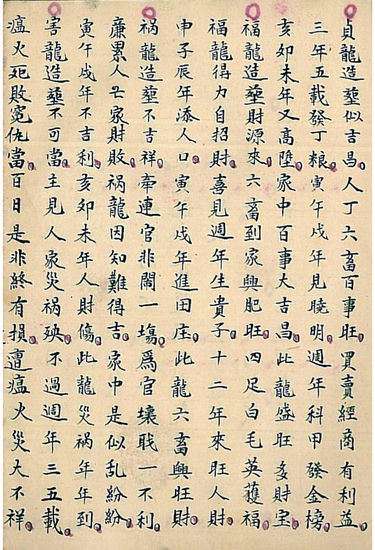 貞龍造塟似吉昌人丁六畜百事旺買賣經商有利益
三年五載發丁粮寅午戌年見曉明週年科甲發金榜
亥卯未年又高陞家中百事大吉昌此龍盛旺多財宝
福龍造塟財源來六畜到家興肥旺四足白毛英蒦福
福龍得力自招財喜見週年生貴子十二年來旺人財
申子辰年添人口寅午戌年進田庄此龍六畜興旺財
禍龍造塟不吉祥牽連官非鬧一塲爲官壞戝一不利
廉累人亡家財敗禍龍因知難得吉家中是似乱紛紛
寅午戌年不吉利亥卯未年人財傷此龍災禍年年到
害龍造塟不可當主見人家災禍殃不過週年三五載
瘟火死敗冤仇當百日是非終有損遭瘟火災大不祥